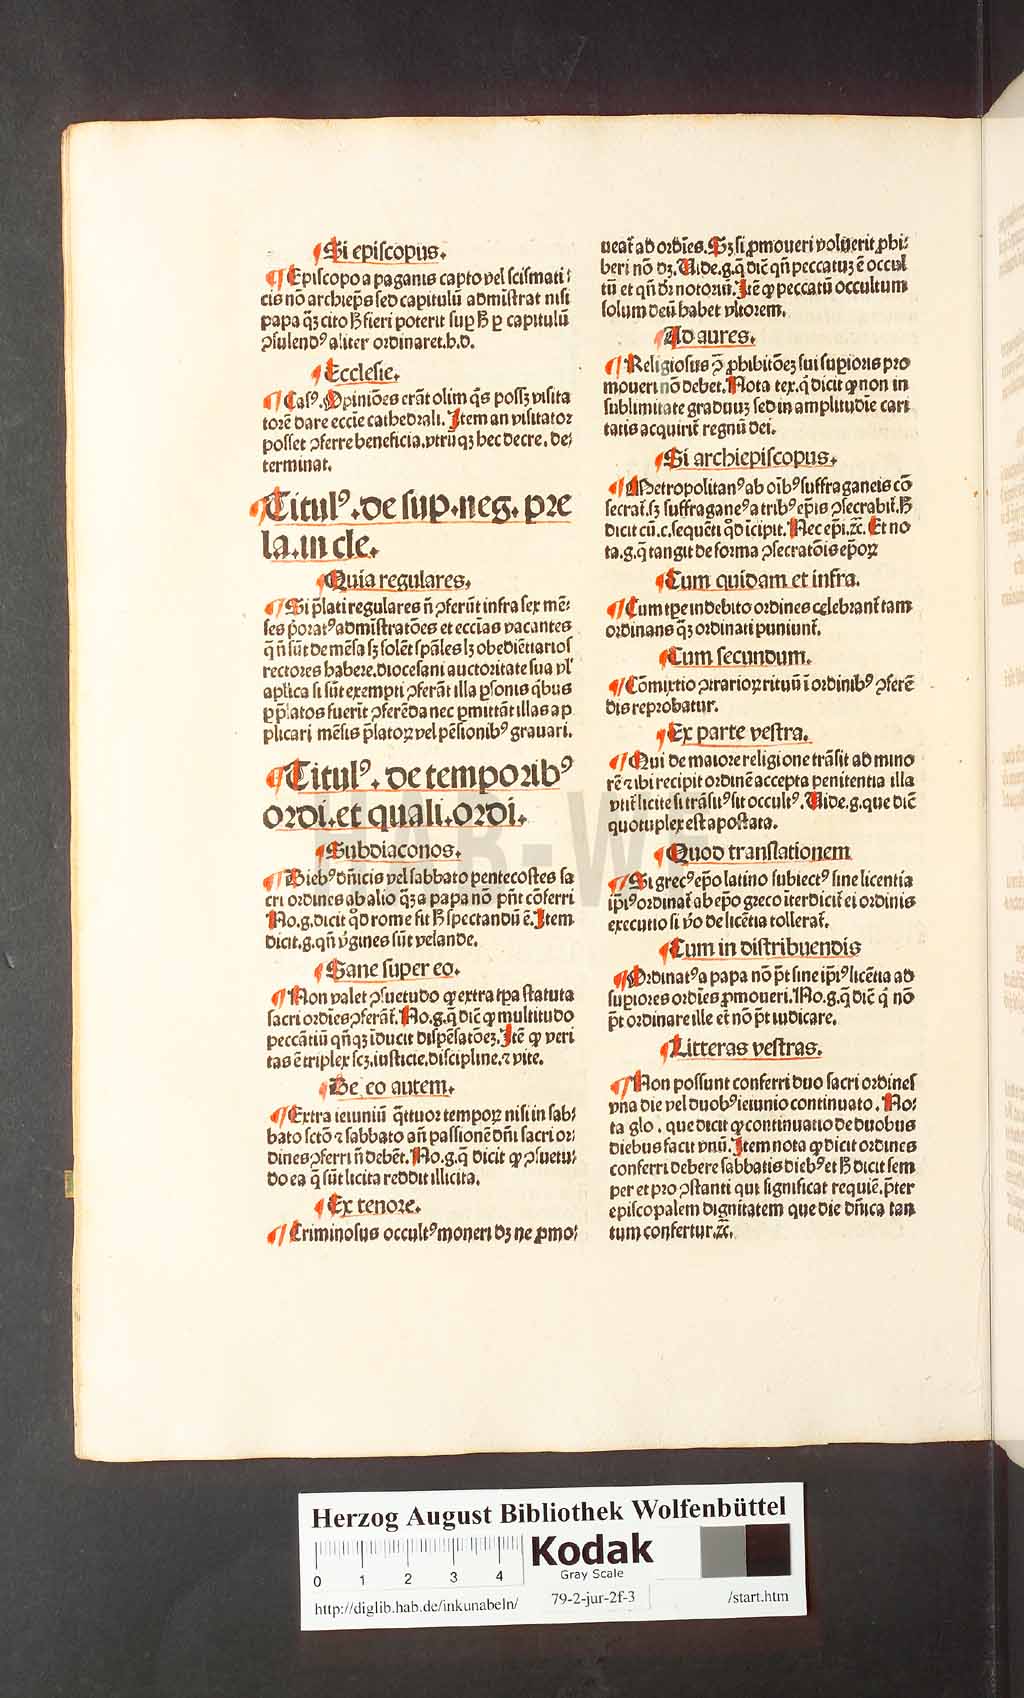 ¶Si episcopus.
¶Episcopo a paganis capto vel scismati⸗
cis nō archiep̄s sed capitulū admīstrat nisi
papa q̄ꝫ cito h̄ fieri poterit suꝑ h̄ ꝑ capitulū
ꝯsulendꝰ aliter ordinaret.h.d.
¶Ecclesie.
¶Casꝰ. Opiniōes erāt olim q̄s possꝫ visita
torē dare eccīe cathedrali. Item an visitator
posset ꝯferre beneficia.vtrūqꝫ hec decre. de⸗
terminat.
¶Titulꝰ.de sup.neg.pre
la.in cle.
¶Quia regulares.
¶Si p̄lati regulares n̄ ꝯferūt infra sex mē⸗
ses p̄oratꝰ admīstratōes et eccīas vacantes
q̄ n̄ sūt de mēsa sꝫ solēt sp̄ales lꝫ obediētiarios
rectores habere.diocesani auctoritate sua vl̄
aplica si sūt exempti ꝯferāt illa ꝑsonis q̄bus
ꝑ p̄latos fuerīt ꝯferēda nec ꝑmittāt illas ap
plicari mēsis p̄latoꝝ vel pēsionibꝰ grauari.
¶Titulꝰ. de temporibꝰ
ordi.et quali.ordi.
¶Subdiaconos.
¶Diebꝰ dn̄icis vel sabbato pentecostes sa
cri ordines ab alio q̄ꝫ a papa nō pn̄t cōferri
No.g.dicit q̄d rome fit h̄ spectandū ē. Item
dicit.g.qn̄ v̄gines sūt velande.
¶Sane super eo.
¶Non valet ꝯsuetudo ꝙ extra tp̄a statuta
sacri ordies ꝯferāt̄. No.g.q̄ dic̄ ꝙ multitudo
peccātiū qn̄qꝫ īducit dispēsatōeꝫ. Itē ꝙ veri
tas ē triplex scꝫ.iusticie.discipline.⁊ vite.
¶De eo autem.
¶Extra ieiuniū q̄ttuor tempoꝝ nisi in sab⸗
bato sctō ⁊ sabbato an̄ passionē dn̄i sacri or⸗
dines ꝯferri n̄ debēt. No.g.q̄ dicit ꝙ ꝯsuetu⸗
do ea q̄ sūt licita reddit illicita.
¶Ex tenore.
¶Criminosus occultꝰ moneri dꝫ ne ꝓmo⸗
ueat̄ ad ordīes. Sꝫ si ꝓmoueri voluerit ꝓhi⸗
beri nō dꝫ. Uide.g.q̄ dic̄ qn̄ peccatuꝫ ē occul
tū et qn̄ dr̄ notoriū. Itē ꝙ peccatū occultum
solum deū habet vltorem.
¶Ad aures.
¶Religiosus ꝯ̄ ꝓhibitōeꝫ sui suꝑioris pro
moueri nō debet. Nota tex.q̄ dicit ꝙ non in
sublimitate graduuꝫ sed in amplitudīe cari
tatis acquirit̄ regnū dei.
¶Si archiepiscopus.
¶Metropolitanꝰ ab oībꝰ suffraganeis cō
secrat̄.sꝫ suffraganeꝰ a tribꝰ ep̄is ꝯsecrabit̄.h̄
dicit cū.c.sequēti q̄d īcipit. Nec ep̄i.ꝛc̄. Et no
ta.g.q̄ tangit de forma ꝯsecratōis ep̄oꝝ
¶Cum quidam et infra.
¶Cum tp̄e indebito ordines celebrant̄ tam
ordinans q̄ꝫ ordinati puniunt̄.
¶Cum secundum.
¶Cōmixtio ꝯtrarioꝝ rituū ī ordinibꝰ ꝯferē
dis reprobatur.
¶Ex parte vestra.
¶Qui de maiore religione trāsit ad mino
rē ⁊ ibi recipit ordinē accepta penitentia illa
vtit̄ licite si trāsitꝰ sit occultꝰ. Uide.g.que dic̄
quotuplex est apostata.
¶Quod translationem
¶Si grecꝰ ep̄o latino subiectꝰ sine licentia
ip̄iꝰ ordinat̄ ab ep̄o greco īterdicit̄ ei ordinis
executio si v̄o de licētia tollerat̄.
¶Cum in distribuendis
¶Ordinatꝰ a papa nō p̄t sine ip̄iꝰ licētia ad
suꝑiores ordīes ꝓmoueri. No.g.q̄ dic̄ q̄ nō
p̄t ordinare ille et̄ nō p̄t iudicare.
¶Litteras vestras.
¶Non possunt conferri duo sacri ordines
vna die vel duobꝰ ieiunio continuato. No⸗
ta glo. que dicit ꝙ continuatio de duobus
diebus facit vnū. Item nota ꝙ dicit ordines
conferri debere sabbatis diebꝰ et h̄ dicit sem
per et pro ꝯstanti qui significat requiē.p̄ter
episcopalem dignitatem que die dn̄ica tan
tum confertur.ꝛc̄.
HAB-WF
Herzog August Bibliothek Wolfenbüttel
0 1 2 3 4
Kodak
Gray Scale
http://diglib.hab.de/inkunabeln/ 79-2-jur-2f-3 /start.htm